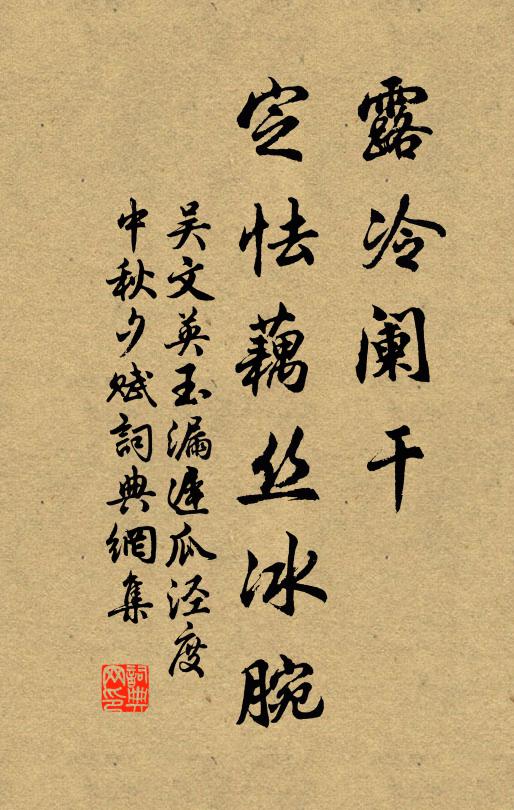 露冷阑干
定怯藕丝冰腕
吴文英玉漏迟瓜泾度
中秋夕赋詞典網集
詞典
网印